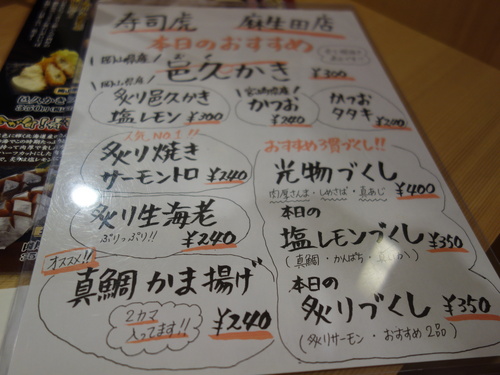 寿司虎 麻生田店
本日のおすすめ
岡山県産!
邑久かき ¥300
岡山県産!
炙り邑久かき
塩レモン ¥300
宮崎県産!
かつお
¥240
かつお
タタキ
¥240
人気NO1!!
炙り焼き
サーモントロ ¥240
炙り生海老
ぷりっぷり!! ¥240
オススメ!!
真鯛かま揚げ
2カマ
入ってます!! ¥240
おすすめ3貫づくし!!
光物づくし
・しめさば・真あじ ¥400
本日の
塩レモンづくし ¥350
(真鯛・かんぱち・
本日の
炙りづくし ¥350
(炙りサーモン・おすすめ2品)
邑久かき